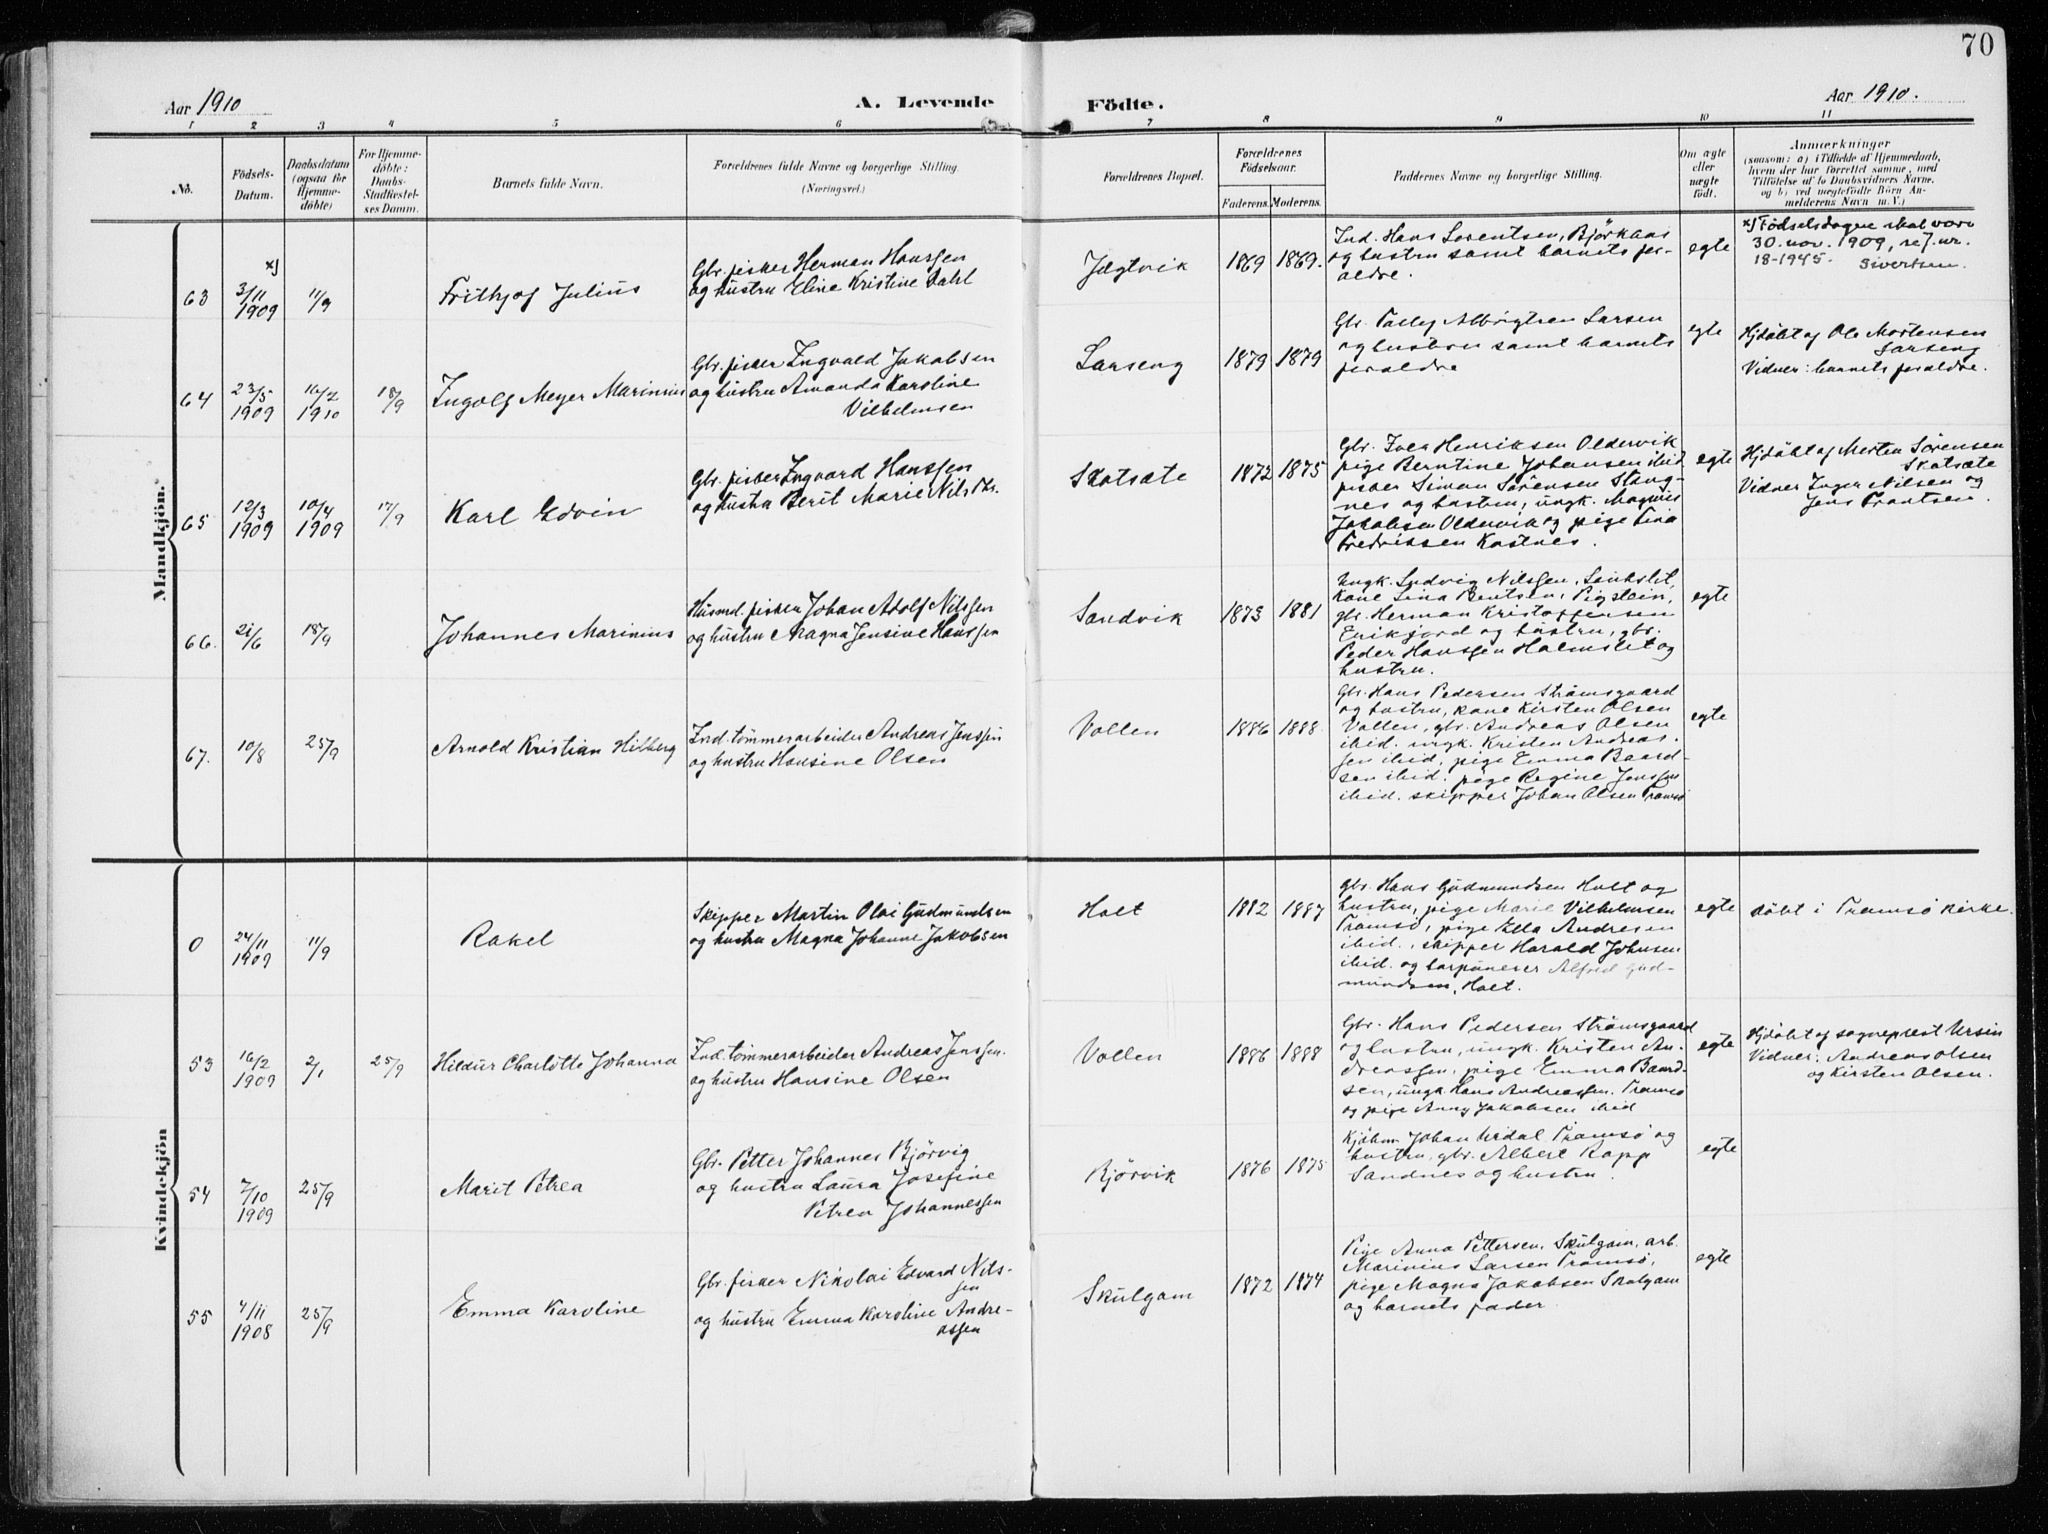 70
Aar 1910
A. Levende
Födte.
Aar 1910.
1 2 3 4 5 6 7 8 9 10 11
No.
Födsels-
Datum.
Daabsdatum
(ogsaa för
Hjemme-
döbte)
For Hjemme-
döbte:
Daabs-
Stadfæstel-
ses Datum.
Barnets fulde Navn.
Forældrenes fulde Navne og borgerlige Stilling.
(Næringsvei.)
Forældrenes Bopæl.
Forældrenes
Födselsaar.
Faderens. Moderens.
Faddernes Navne og borgerlige Stilling.
Om ægte
eller
uægte
födt.
Anmærkninger
(saasom: a) i Tilfælde af Hjemmedaab,
hvem der har forrettet samme, med
Tilföielse af to Daabsvidners Navne,
og b) ved uægtefödte Börn An-
melderens Navn m. V.)
Mandkjön.
63
x)
3/11
1909
11/9
Frithjof Julius
Gbr. fisker Herman Hanssen
og hustru Eline Kristine Dahl
Jægtvik
1869 1869.
Ind. Hans Lorentsen, Bjørkaas
og hustru samt barnets for-
ældre.
egte
x) Fødselsdagen skal være
30. nov. 1909, se J. nr.
18-1945. Sivertsen.
64
23/5
1909
16/2
1910
18/9
Ingolf Meyer Marinius
Gbr. fisker Ingvald Jakobsen
og hustru Amanda Karoline
Vilhelmsen
Larseng
1879 1879
Gbr. Albrigtsen Larsen
og hustru samt barnets
forældre
egte
Hjdøbt af Ole Mortensen
Larseng
Vidner: barnets forældre.
65
12/3
1909
10/4
1909
17/9
Karl Edvin
Gbr. fisker Ingvard Hanssen
og hustru Berit Marie Nilsdtr.
Skatsæte
1872 1875
Gbr. Iver Henriksen Oldervik
pige Berntine Johansen ibid
fisker Simon Sørensen Stang-
nes og hustru, ungk. Magnus
Jakobsen Oldervik og pige Tina
Fredriksen Kastnes.
egte
Hjdøbt af Morten Sørensen
Skatsæte
Vidner Inger Nilsen og
Jens Frantsen.
66.
21/6
18/9
Johannes Marinius
Husmd. fisker Johan Adolf Nilssen
og hustru Magna Jensine Hanssen
Sandvik
1873 1881
Ungk. Ludvig Nilssen,
kone Lina Bentsen,
gbr. Herman Kristoffersen
Erikfjord og hustru, gbr.
Peder Hanssen Holmslet og
hustru.
egte
67.
10/8
25/9
Arnold Kristian Hilberg
Ind. tømmerarbeider Andreas Jenssen
og hustru Hansine Olsen
Vollen
1886 1888.
Gbr. Hans Pedersen Strømsgaard
og hustru, kone Kirsten Olsen
Vollen, gbr. Andreas Olsen
ibid. ungk. Kristen Andreas-
sen ibid, pige Emma Baard-
sen ibid. pige Regine Jenssen
ibid. skipper Johan Olsen Tromsø
egte
Kvindekjön
0
24/11
1909
11/9
Rakel
Skipper Martin Olai Gudmundsen
og hustru Magna Johanne Jakobsen
Holt
1882 1887
Gbr. Hans Gudmundsen Holt og
hustru, pige Marie Vilhelmsen
Tromsø, pige Ella Andresen
ibid., skipper Harald Johnsen
ibid. og harpunerer Alfred Gud-
mundsen, Holt.
egte
døbt i Tromsø kirke.
53
16/2
1909
2/1
25/9
Hildur Charlotte Johanna
Ind. tømmerarbeider Andreas Jenssen.
og hustru Hansine Olsen
Vollen
1886 1888
Gbr. Hans Pedersen Strømsgaard
og hustru, ungk. Kristen An-
dreassen, pige Emma Baard-
sen, ungk Hans Andreassen, Tromsø
og pige Anny Jakobsen ibid
egte
Hjdøbt af sogneprest Ursin
Vidner: Andreas Olsen
og Kirsten Olsen.
54
7/10
1909
25/9
Marit Petrea
Gbr. Petter Johannes Bjørvig
og hustru Laura Josefine
Petrea Johannessen
Bjørvik
1876 1875
Kjøbm. Johan Urdal Tromsø og
hustru, gbr. Albert Kopp
Sandnes og hustru.
egte
55
4/11
1908
25/9
Emma Karoline
Gbr. fisker Nikolai Edvard Nils-
sen
og hustru Emma Karoline Andre-
assen
Skulgam
1872 1874
Pige Anna Pettersen, Skulgam, arb.
Marinius Larsen Tromsø,
pige Magna Jakobsen Skulgam
og barnets fader.
egte